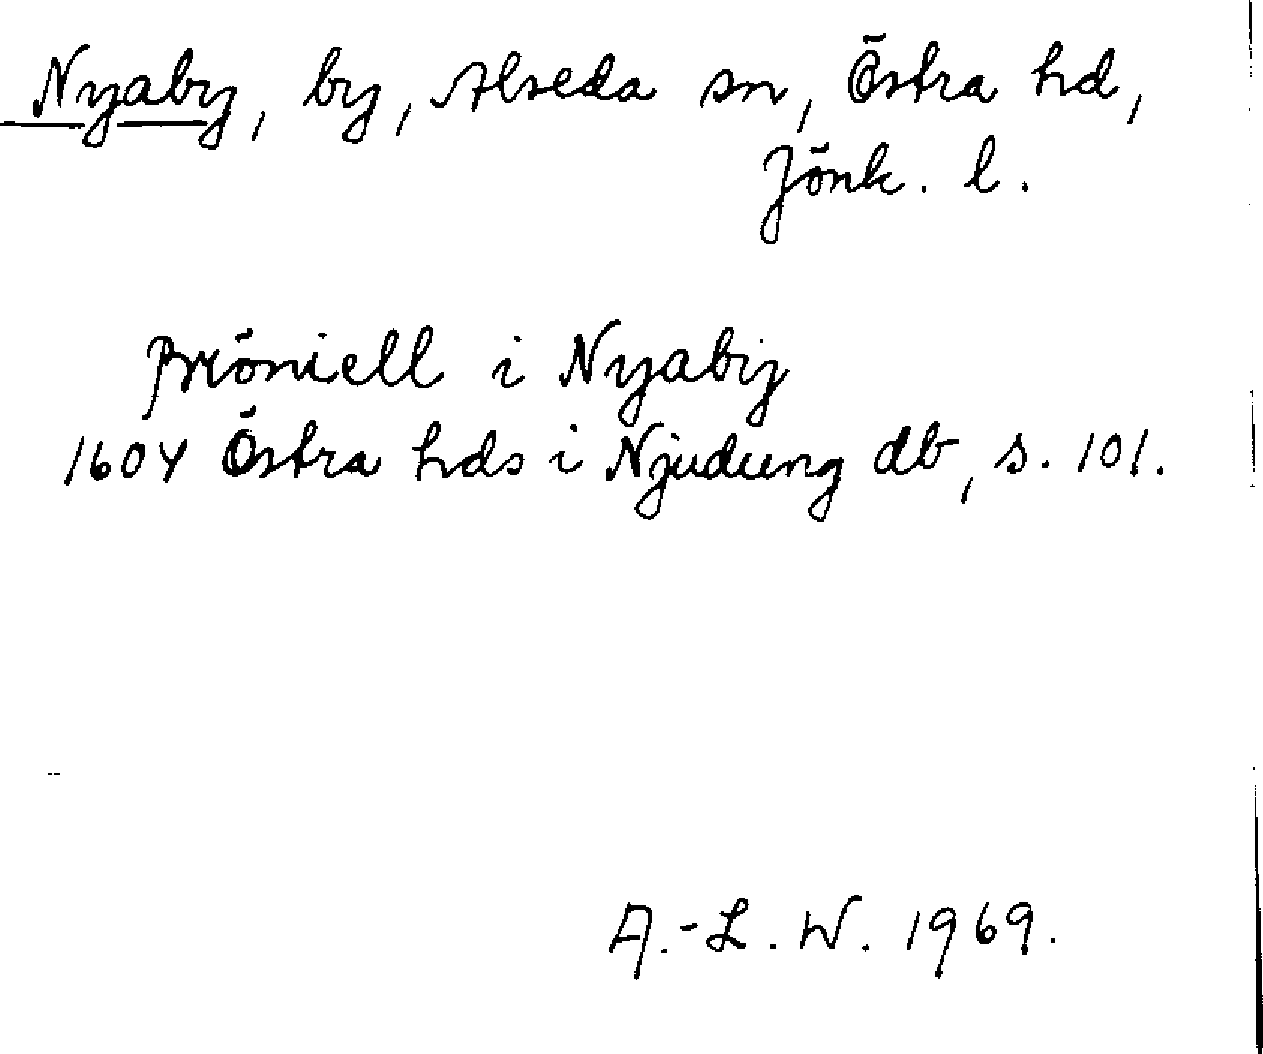 Nyaby, by, Alseda sn, Östra hd,
Jönk. l.
Bröniell i Nyabij
1604 Östra hds i Njudung db, s. 101.
A.-L. W. 1969.